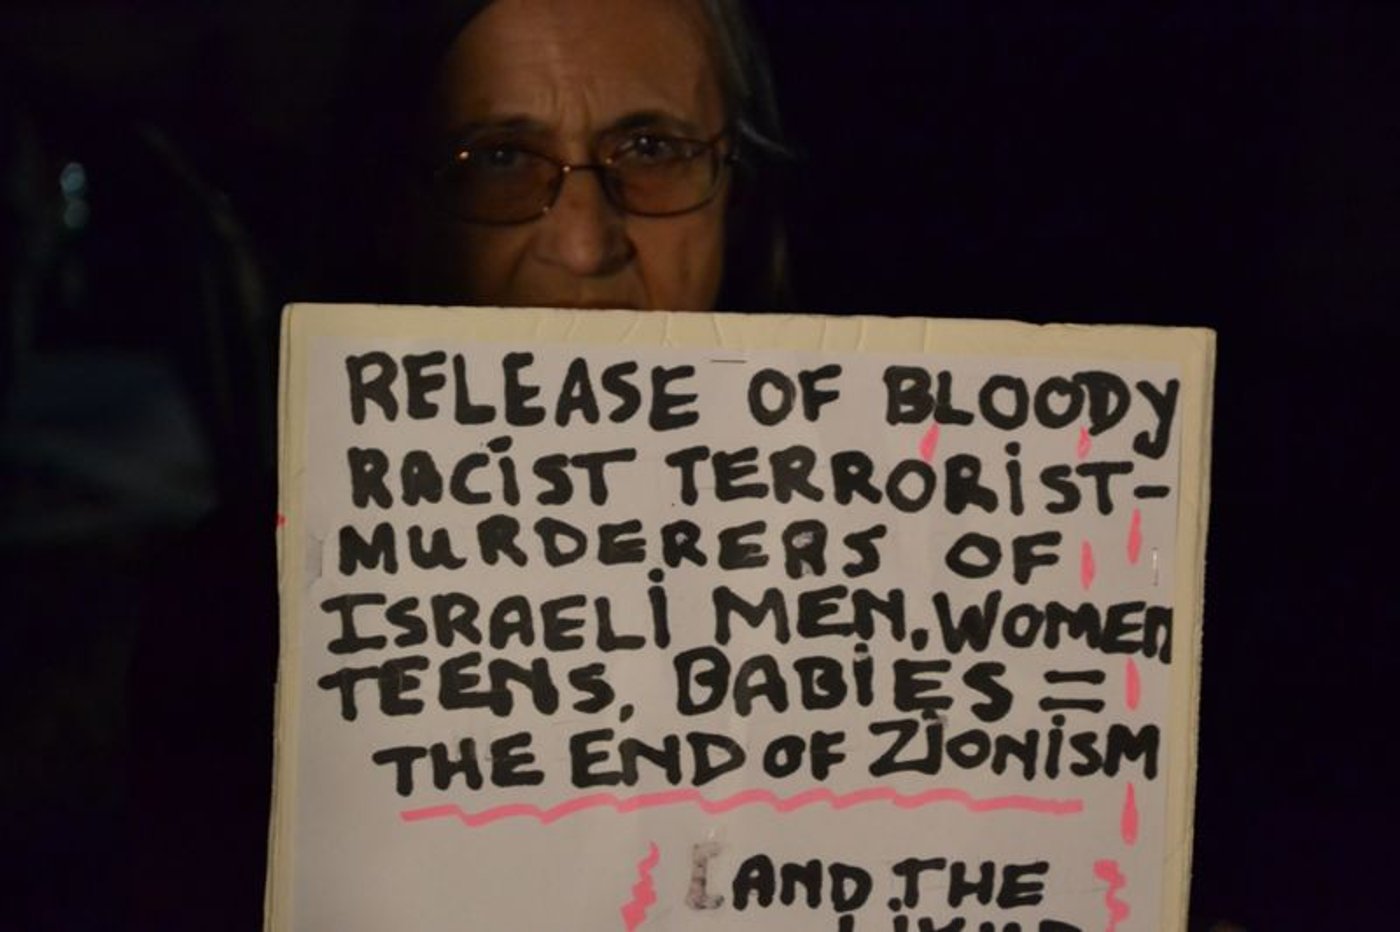 RELEASE OF BLOODY
RACIST TERRORIST-
MURDERERS OF
ISRAELI MEN, WOMEN
TEENS, BABIES =
THE END OF ZIONISM
[AND THE
LIKUD